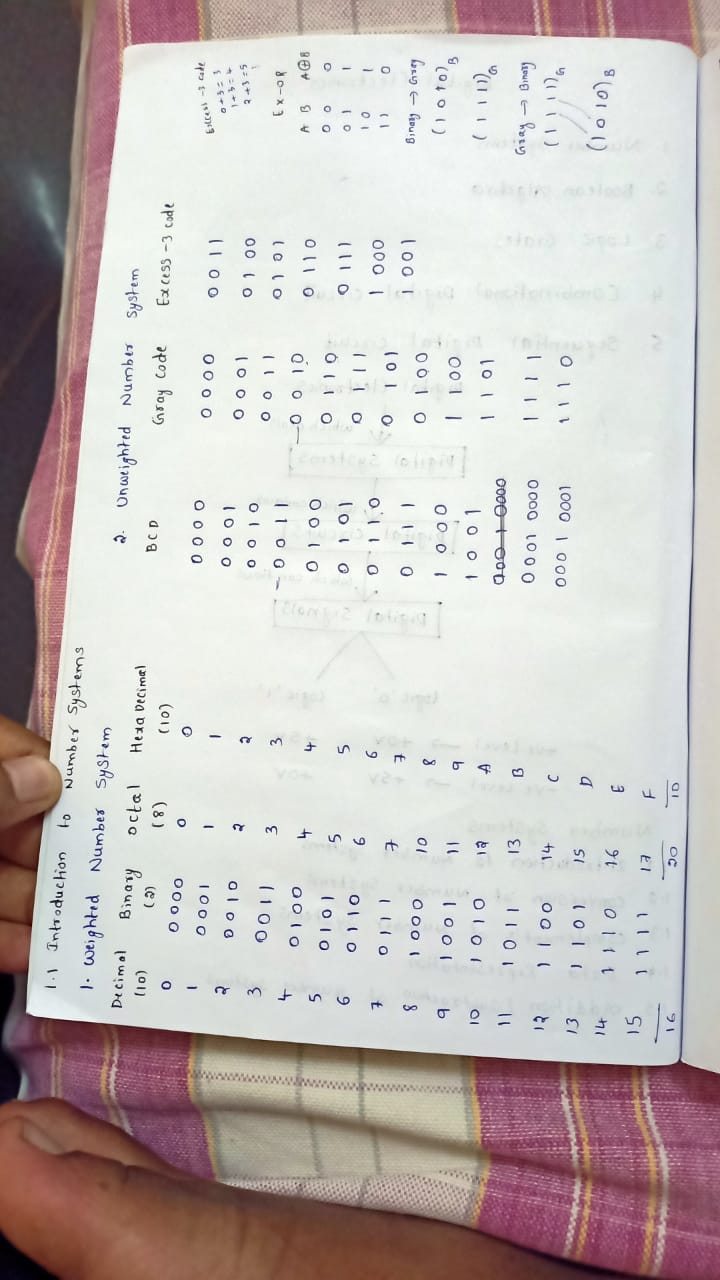 1.1 Introduction to Number Systems
1. Weighted Number System
Decimal Binary octal Hexa Decimal
(10) (2) (8) (10)
0 0000 0 0
1 0001 1 1
2 0010 2 2
3 0011 3 3
4 0100 4 4
5 0101 5 5
6 0110 6 6
7 0111 7 7
8 1000 10 8
9 1001 11 9
10 1010 12 A
11 1011 13 B
12 1100 14 C
13 1101 15 D
14 1110 16 E
15 1111 17 F
16 20 10
2. Unweighted Number System
BCD Gray Code Excess-3 code
0000 0000 0011
0001 0001 0100
0010 0011 0101
0011 0010 0110
0100 0110 0111
0101 0111 1000
0110 0101 1001
0111 0100
1000 1100
1001 1101
0001 0000
0001 0000 1111
0001 0001 1110
Excess-3 code
0+3=3
1+3=4
2+3=5
Ex-OR
A B A⊕B
0 0 0
0 1 1
1 0 1
1 1 0
Binary → Gray
(1010)B
(1111)G
Gray → Binary
(1111)G
(1010)B